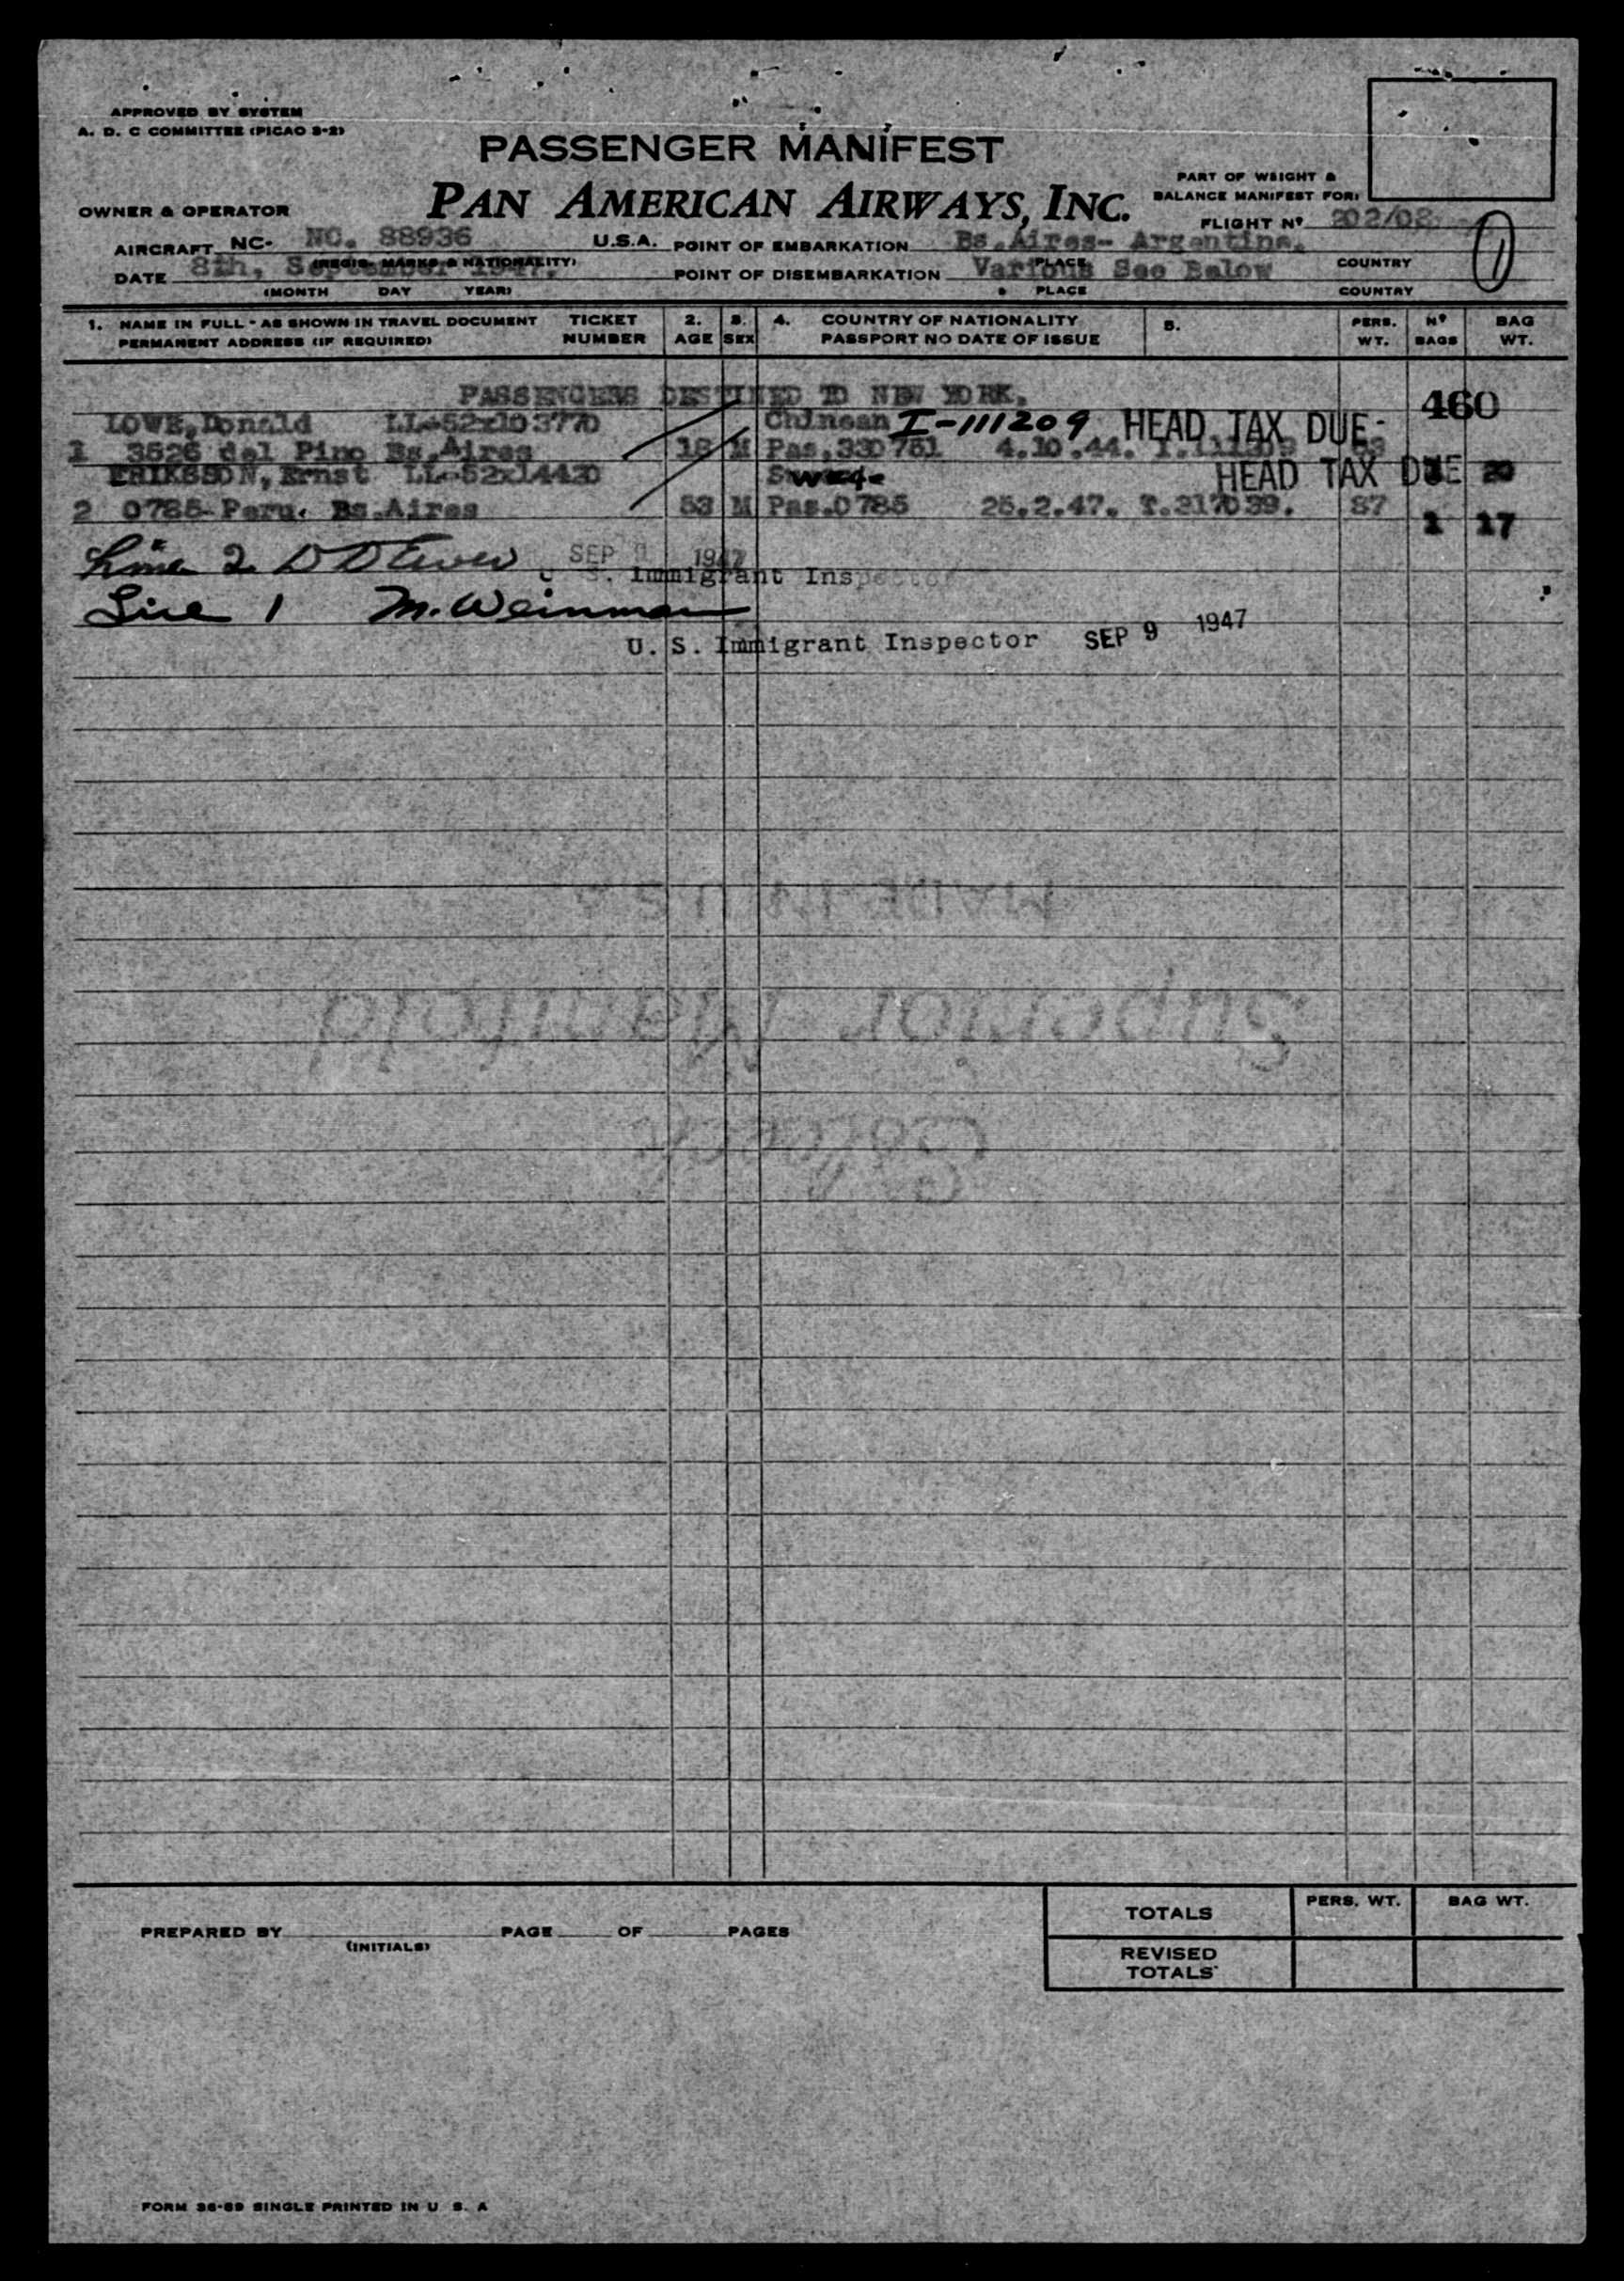 APPROVED BY SYSTEM
A. D. C COMMITTEE (PICAO 2-2)
PASSENGER MANIFEST
PAN AMERICAN AIRWAYS, INC.
PART OF WEIGHT &
BALANCE MANIFEST FOR:
OWNER & OPERATOR
FLIGHT Nº 202/08
AIRCRAFT NC- NC. 88936 U.S.A. POINT OF EMBARKATION Bs.Aires- Argentina.
(REGIS. MARKS & NATIONALITY) PLACE COUNTRY
DATE 8th, September 1947. POINT OF DISEMBARKATION Various See Below
(MONTH DAY YEAR) PLACE COUNTRY
1. NAME IN FULL - AS SHOWN IN TRAVEL DOCUMENT TICKET 2. 3. 4. COUNTRY OF NATIONALITY 5. PERS. Nº BAG
PERMANENT ADDRESS (IF REQUIRED) NUMBER AGE SEX PASSPORT NO DATE OF ISSUE WT. BAGS WT.
PASSENGERS DESTINED TO NEW YORK. 460
LOWE, Donald LL-52x103770 Chinean I-111209 HEAD TAX DUE-
1 3526 del Pino Bs.Aires 18 M Pas.330751 4.10.44. T.111209 63
ERIKSSON, Ernst LL-52x14420 Swed. HEAD TAX DUE 20
2 0785-Peru. Bs.Aires 53 M Pas.0785 25.2.47. T.317039. 87
1 17
Line 2. SEP 1947
U. S. Immigrant Inspector
Line 1 M. Weinman
U. S. Immigrant Inspector SEP 9 1947
MADE IN U S A
Superior Manifold
TOTALS PERS. WT. BAG WT.
PREPARED BY PAGE OF PAGES
(INITIALS)
REVISED
TOTALS
FORM 36-69 SINGLE PRINTED IN U S. A